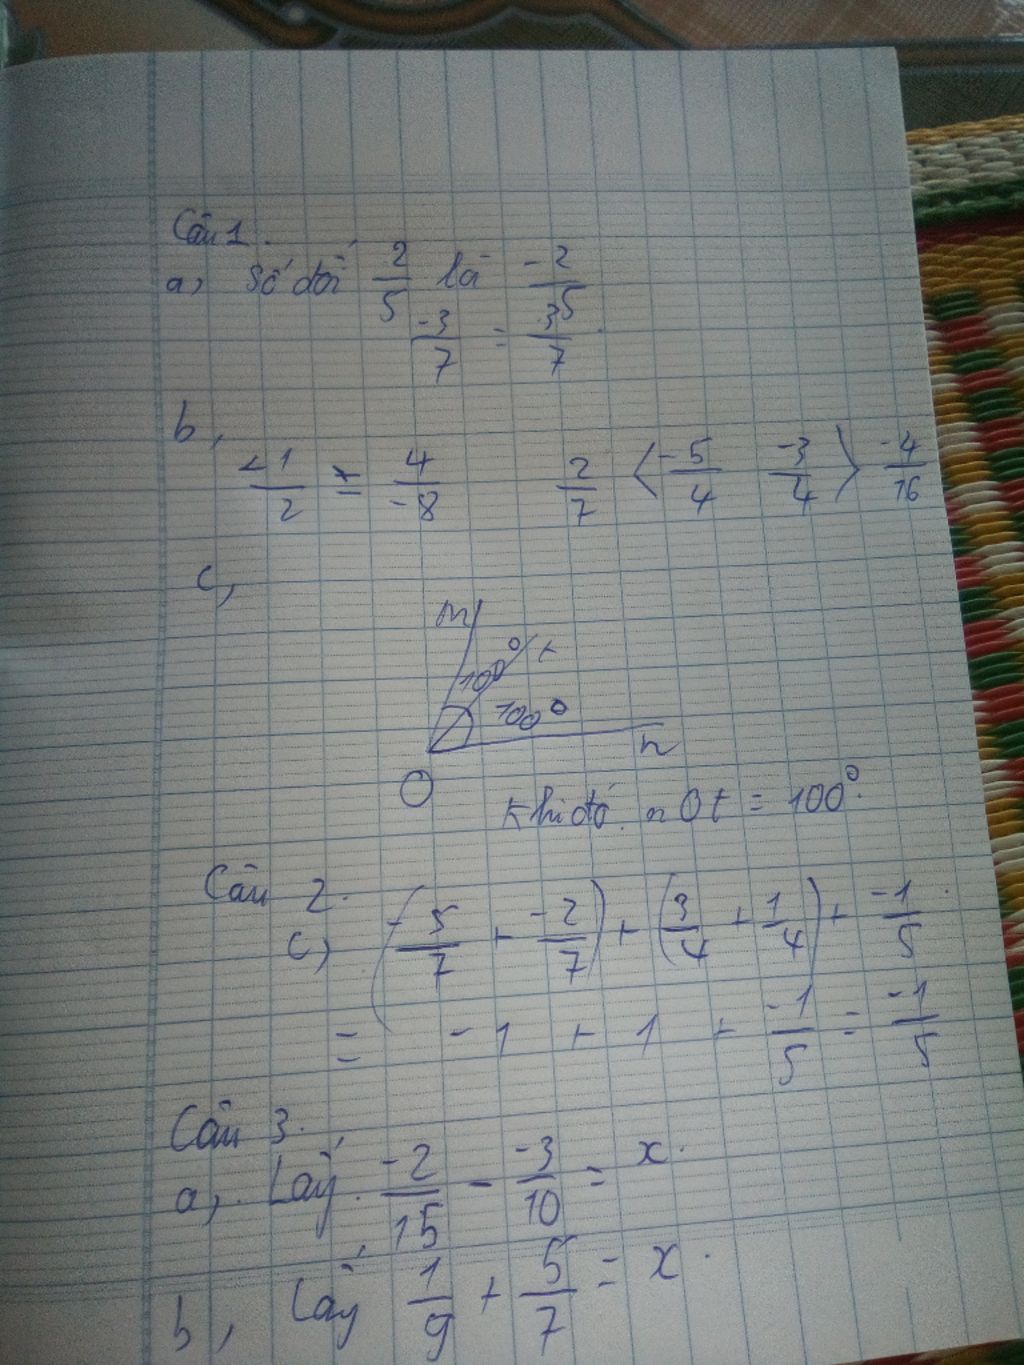 Câu 1.
a, Số đối 2/5 là -2/5
-3/7 = 3/7.
b,
-1/2 = 4/-8 2/7 < -5/4 -3/4 > -4/16
c,
m
100° t
100°
n
O
Khi đó nOt = 100°.
Câu 2.
c) (-5/7 + -2/7) + (3/4 + 1/4) + -1/5
= -1 + 1 + -1/5 = -1/5
Câu 3.
a, Lấy -2/15 - -3/10 = x.
b, Lấy 1/9 + 5/7 = x.